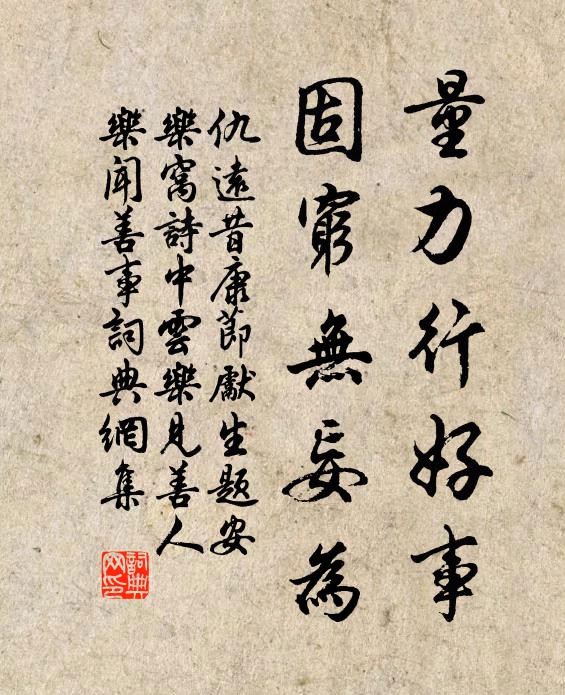 量力行好事
固窮無妄為
仇遠昔康節獻生題安
樂窩詩中雲樂見善人
樂聞善事詞典網集
詞典
网印